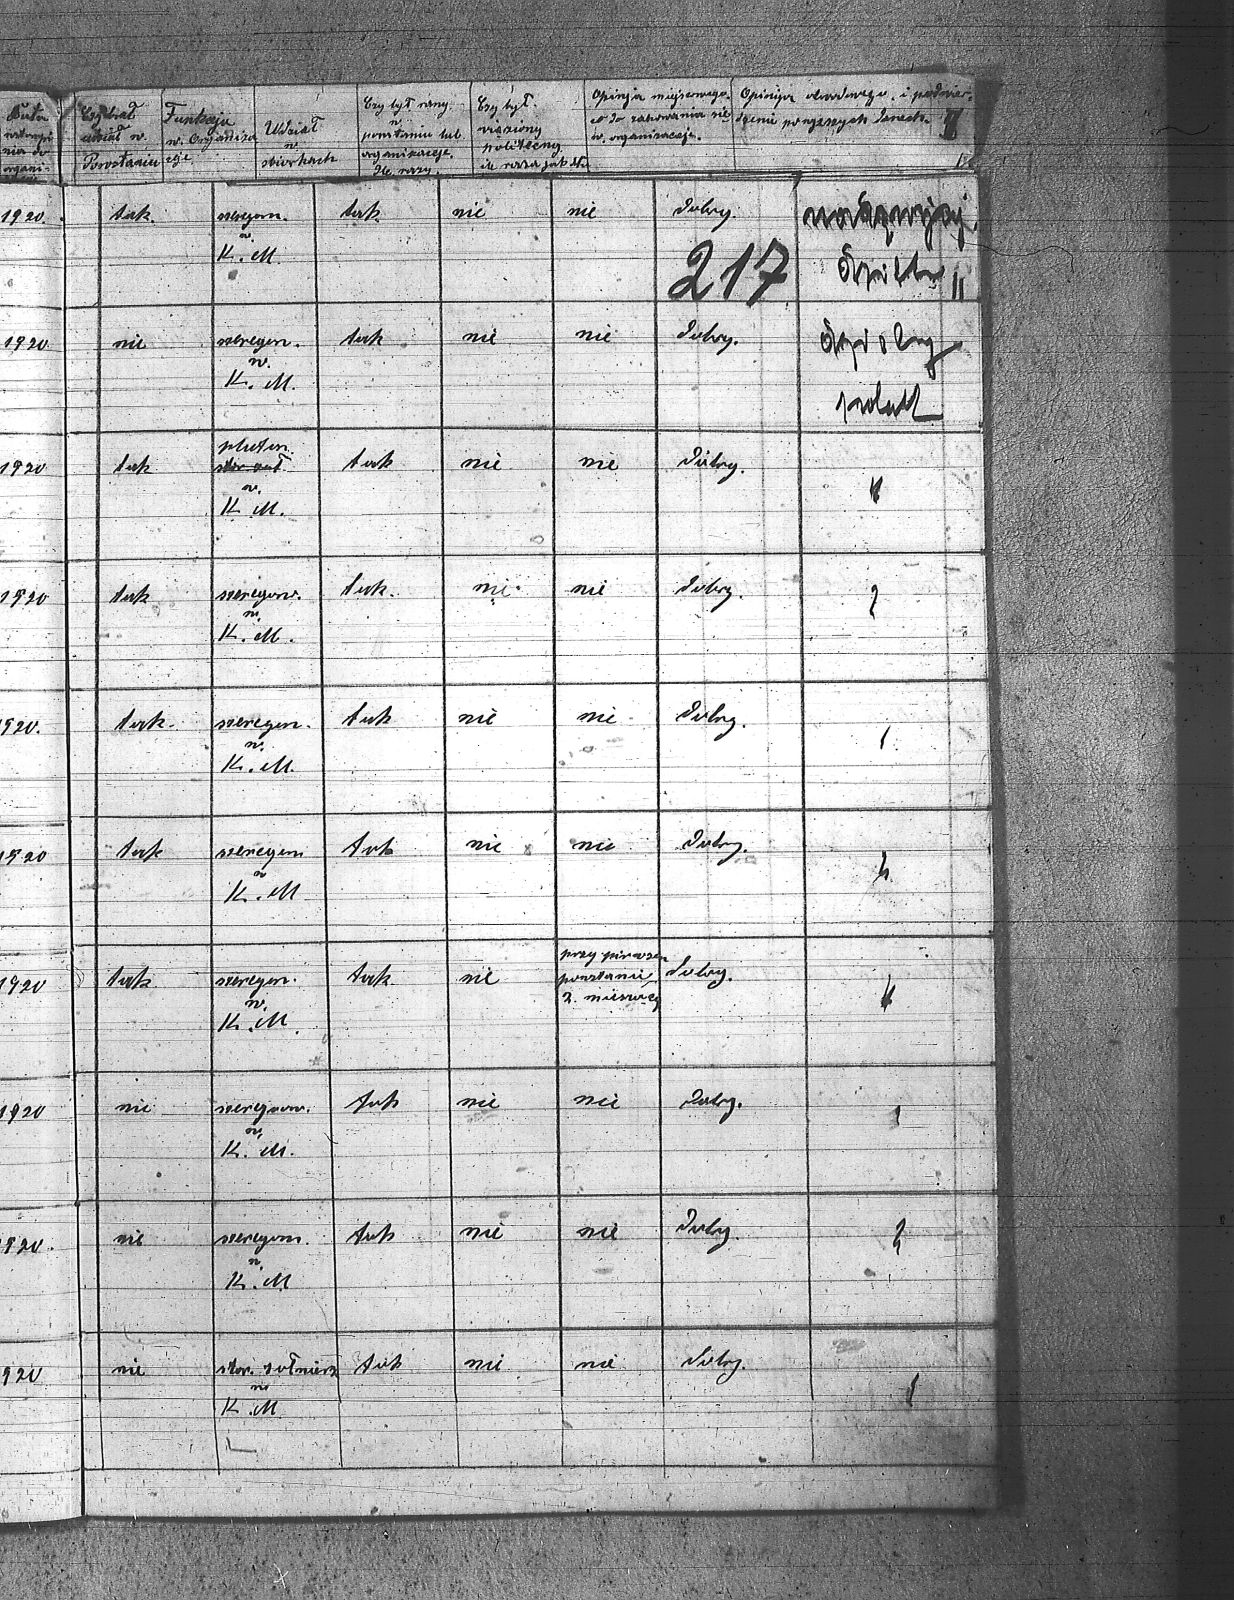 Data
Czy brał
udział w.
Powstaniu
Funkcja
w. Organiza
cji
Udział
w
zbiórkach
Czy był ranny
w
powstaniu lub
organizacji.
Ile razy.
Czy był.
więziony
polityczny
ile razy jak dłu
Opinja miejscowego.
co do zachowania się
w. organizacji.
Opinija obwodowego. i potwier.
dzenie powyższych danych. II
1920. tak. szeregow. tak nie nie Dobry.
w.
K. M. 217
1920 nie szeregow. tak nie nie Dobry.
w.
K. M.
pluton.
1920 tak tak nie nie Dobry.
w.
K. M.
1920 tak szeregow. tak. nie nie Dobry.
w.
K. M.
1920. tak. szeregow. tak nie nie Dobry.
w.
K. M.
1920 tak szeregow tak nie nie Dobry.
w
K. M
przy pierwszem
1920 tak szeregow. tak nie powstaniu Dobry.
w. 2. miesięcy
K. M.
1920 nie szeregow. tak nie nie Dobry.
w.
K. M.
1920. nie szeregow. tak nie nie Dobry.
w.
K. M
1920 nie star. żołnierz tak nie nie Dobry.
w
K. M